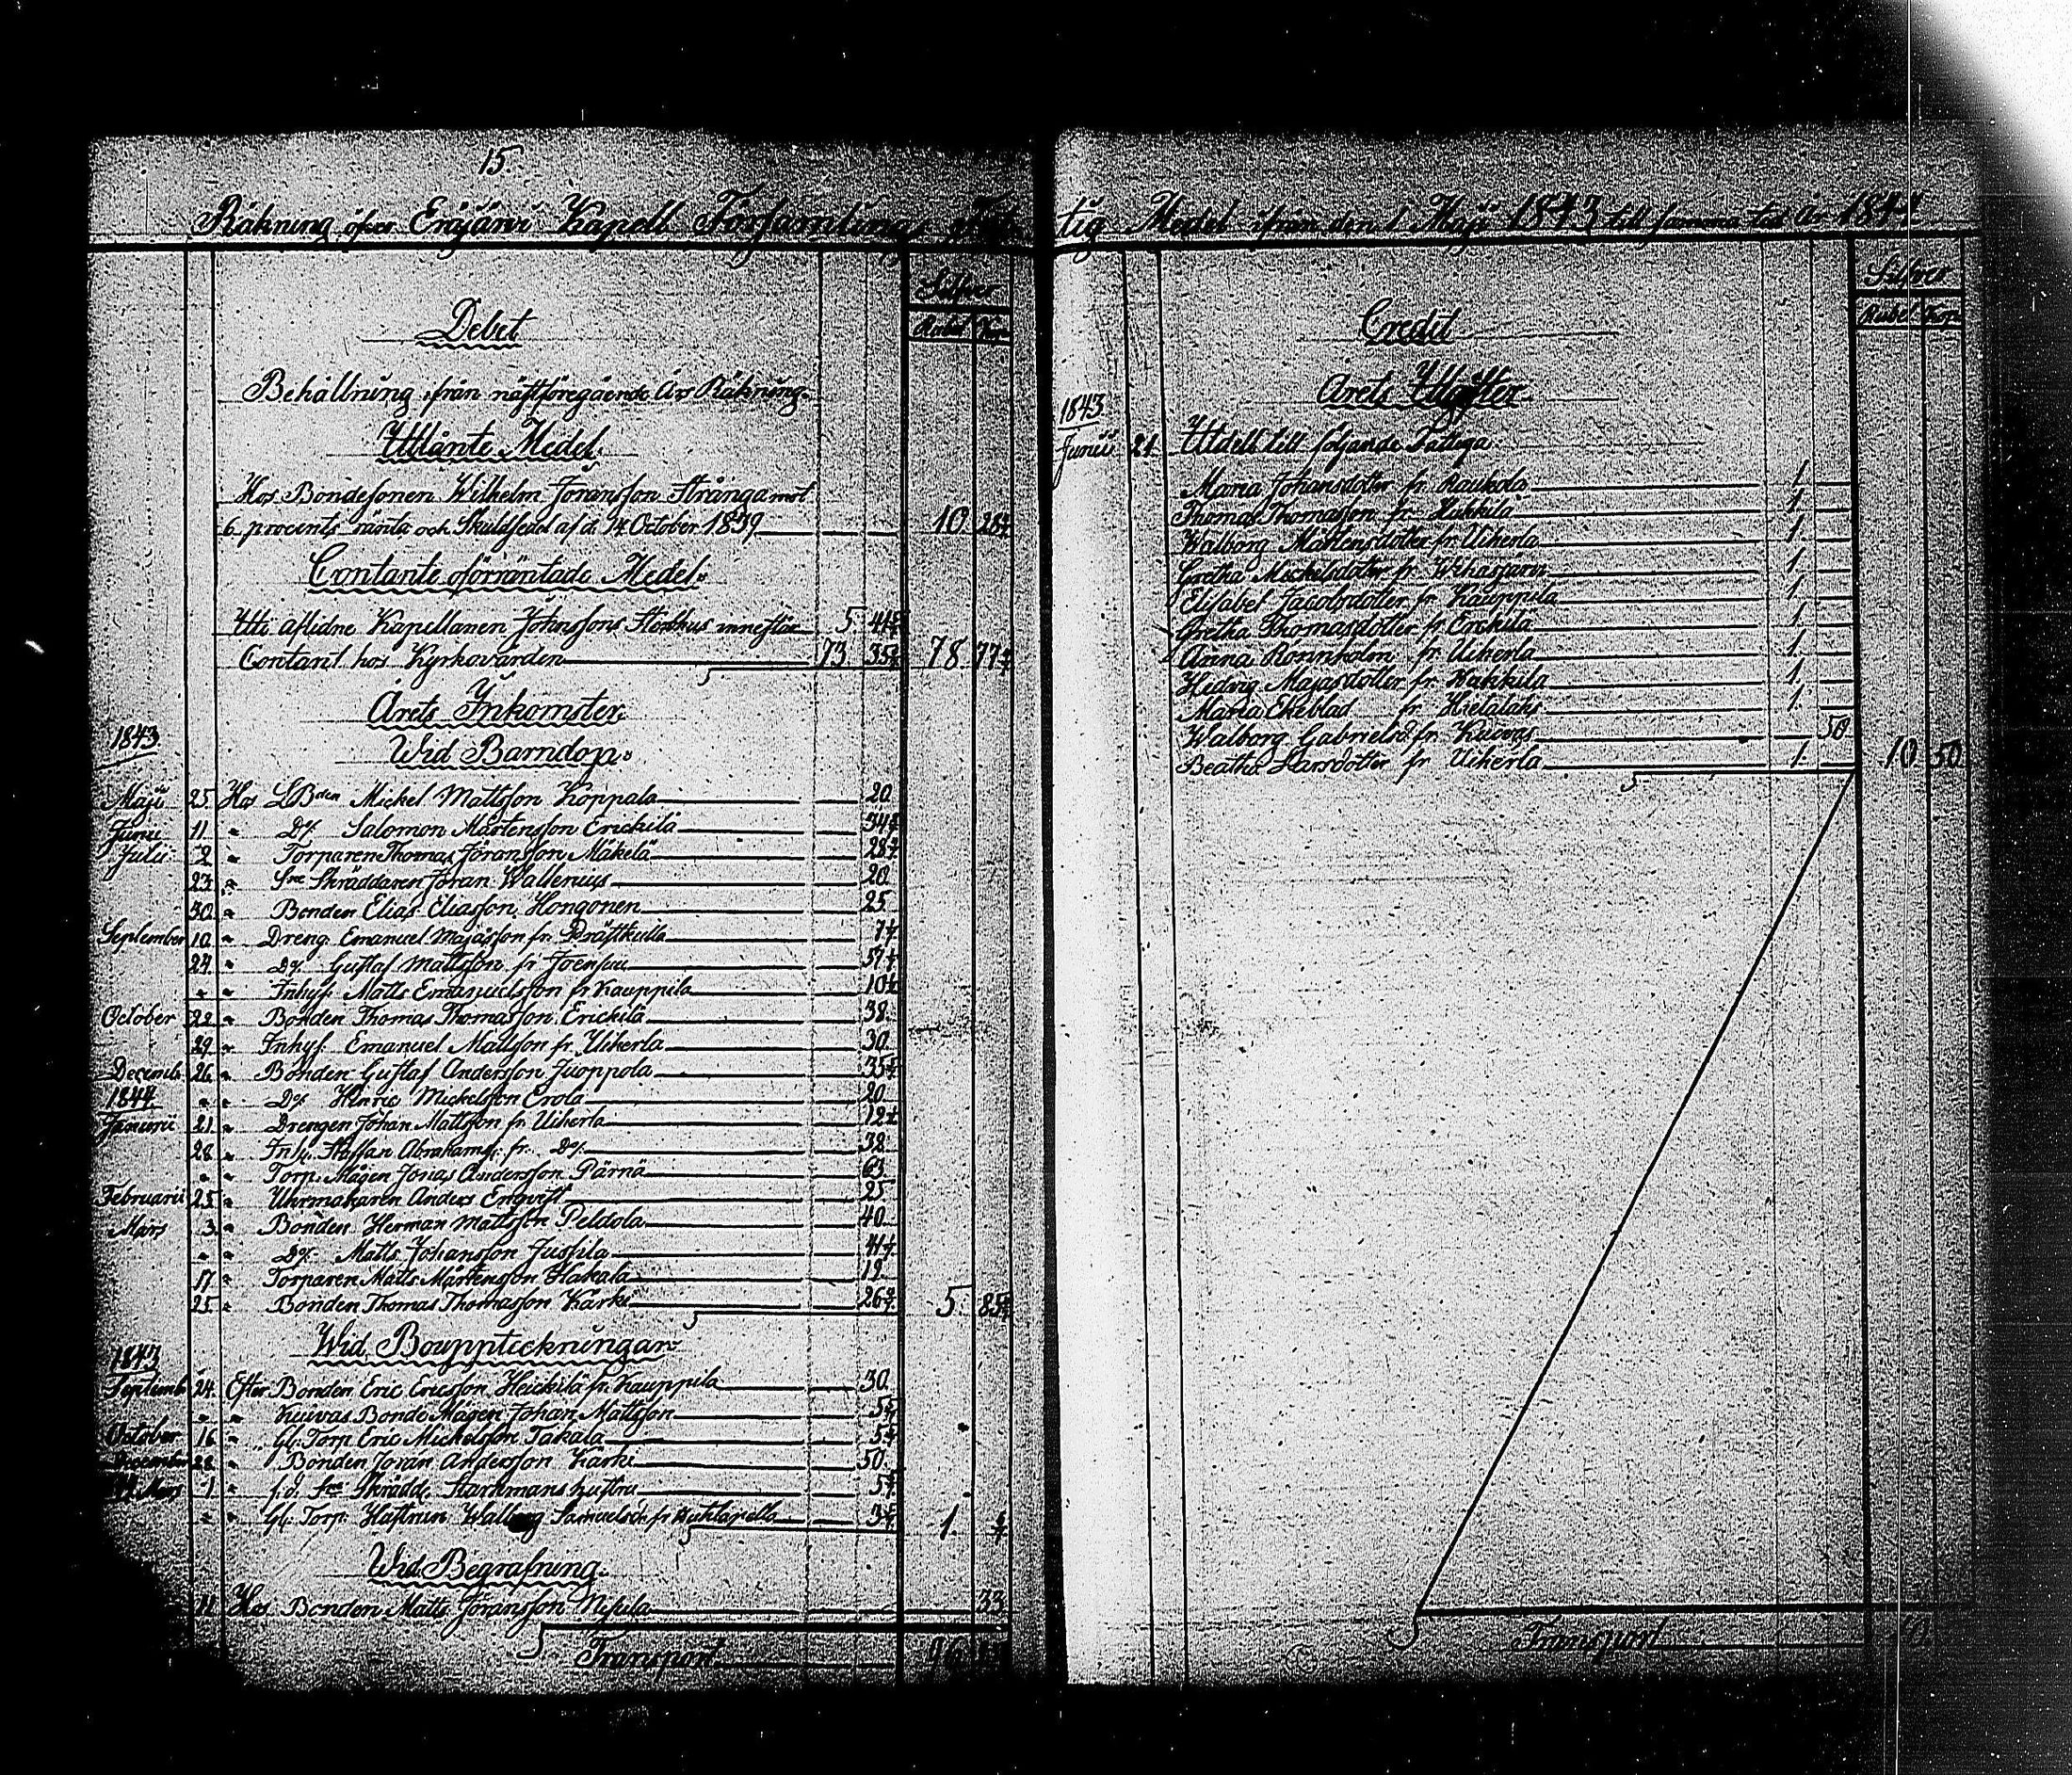 15.
Räkning öfver Eräjärvi Kapell Församlings Fat
tig Medel ifrån den 1 Maji 1843 till samma tid År 1844
Silfver
Rubel Kop
Debet
Behållning ifrån nästföregående Års Räkning.
Utlånte Medel.
Hos Bondesonen Wilhelm Joransson Strånga mot
6 procents ränta och Skuldsedel af d. 14 October 1839 10 28 4/7
Contante oförräntade Medel.
Uti aflidne Kapellanen Johnssons Sterbhus innestår 5 41
Contant hos Kyrkovärden 73 35 78 77
Årets Inkomster
Wid Barndop.
1843
Maji 25 Hos LBden Mickel Mattsson Koppala 20
Junii 11 " Do Salomon Mårtensson Erickilä 34
Julii 2 " Torparen Thomas Jöransson Mäkelä 28
23 " Skräddaren Jöran Wallenius 20
30 " Bonden Elias Eliasson Hongonen 25
September 10 " Dreng Emanuel Majasson fr. Prästkulla 7
24 " Do Gustaf Mattsson fr Joensuu 57
" " Inhys. Matts Emanuelsson fr Kauppila 10
October 22 " Bonden Thomas Thomasson Erickilä 38
29 " Inhys. Emanuel Mattsson fr. Uiherla 30
Decemb. 26 " Bonden Gustaf Andersson Juoppola 35
" " Do Hinric Mickelsson Erola 20
1844
Januarii 21 " Drengen Johan Mattsson fr Uiherla 12
28 " Inhy. Staffan Abrahams. fr. Do 32
" " Torp. Mågen Jonas Andersson Pärnä 63
Februarii 25 " Uhrmakaren Anders Engvist 25
Mars 3 " Bonden Herman Mattsson Peldola 40
" " Do Matts Johansson Jussila 41
17 " Torparen Matts Mårtensson Hakala 19
25 " Bonden Thomas Thomasson Karki 26 5 85
Wid Bouppteckningar
1843
Septemb 24 Efter Bonden Eric Ericsson Heickilä fr. Kauppila 30
" " Kuivas Bonde Mågen Johan Mattsson 5
October 16 " Gl. Torp Eric Mickelsson Takala 5
December 28 " Bonden Joran Andersson Karki 50
44 Mars 1 " f.d. Skrädd. Starkmans hustru 5
" " Gl. Torp. Hustrun Walborg Samuelsd. fr 3 1
Wid Begrafning.
11 Hos Bonden Matts Joransson 33
Transport 96
Silfver
Rubel Kop
Credit
Årets Utgifter
1843
Junii 24 Utdelt till följande Fattiga.
Maria Johansdotter fr Raukola 1
Thomas Thomasson fr Hukkila 1
Walborg Mårtensdotter fr Uiherla 1
Gretha Mickelsdotter fr. Wihasjärvi 1
Elisabet Jacobsdotter fr Kauppila 1
Gretha Thomasdotter fr Erickilä 1
Anna Rönnholm fr Uiherla 1
Hedvig Majasdotter fr Hukkila 1
Maria Ekeblad fr Hietalahs 1
Walborg Gabrielsd fr Kuivas 50
Beatha Larsdotter fr Uiherla 1 10 50
Transport 10